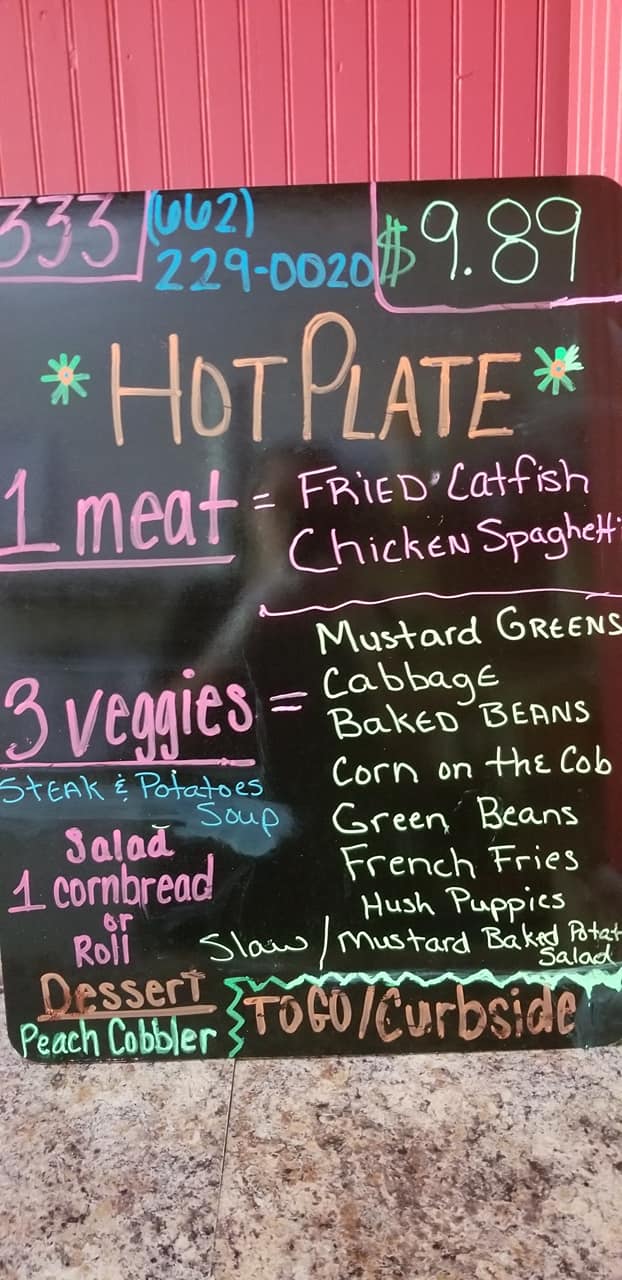 333
(662)
229-0020
$9.89
* HOT PLATE *
1 meat = FRIED Catfish
ChickEN Spaghetti
Mustard GREENS
3 veggies = Cabbage
BAKED BEANS
Corn on thE Cob
StEAk & Potatoes
Soup
Green Beans
Salad
French Fries
1 cornbread
Hush Puppies
or
Roll
Slaw / Mustard Baked Potat
Salad
Dessert
Peach Cobbler
TOGO/Curbside